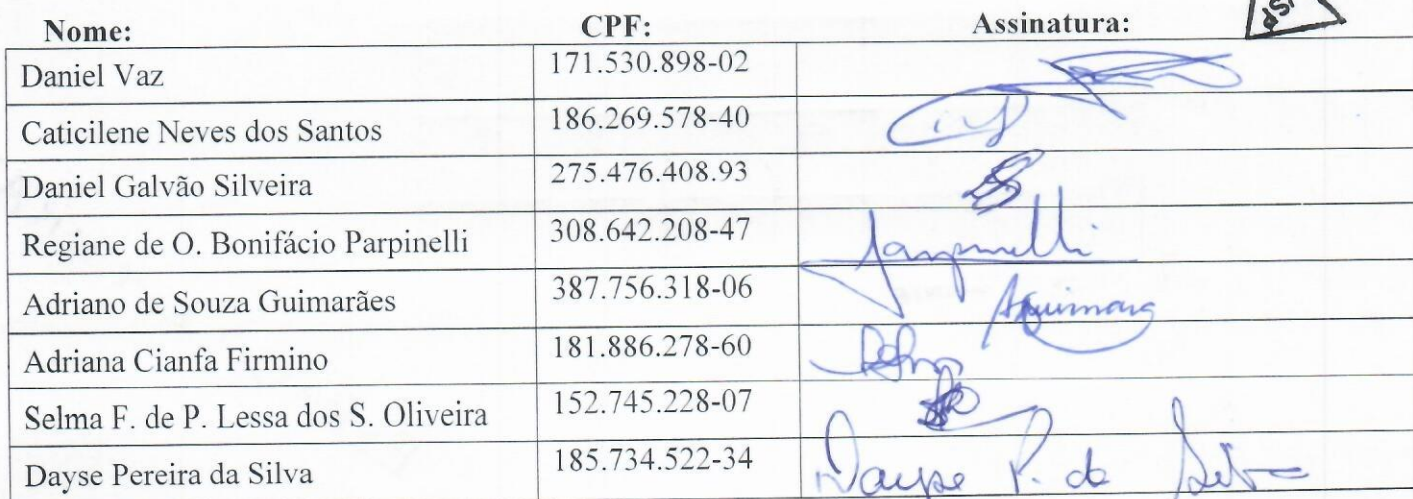 Nome: CPF: Assinatura:
Daniel Vaz 171.530.898-02
Caticilene Neves dos Santos 186.269.578-40
Daniel Galvão Silveira 275.476.408.93
Regiane de O. Bonifácio Parpinelli 308.642.208-47 Parpinelli
Adriano de Souza Guimarães 387.756.318-06
Adriana Cianfa Firmino 181.886.278-60
Selma F. de P. Lessa dos S. Oliveira 152.745.228-07
Dayse Pereira da Silva 185.734.522-34 Dayse P. da Silva